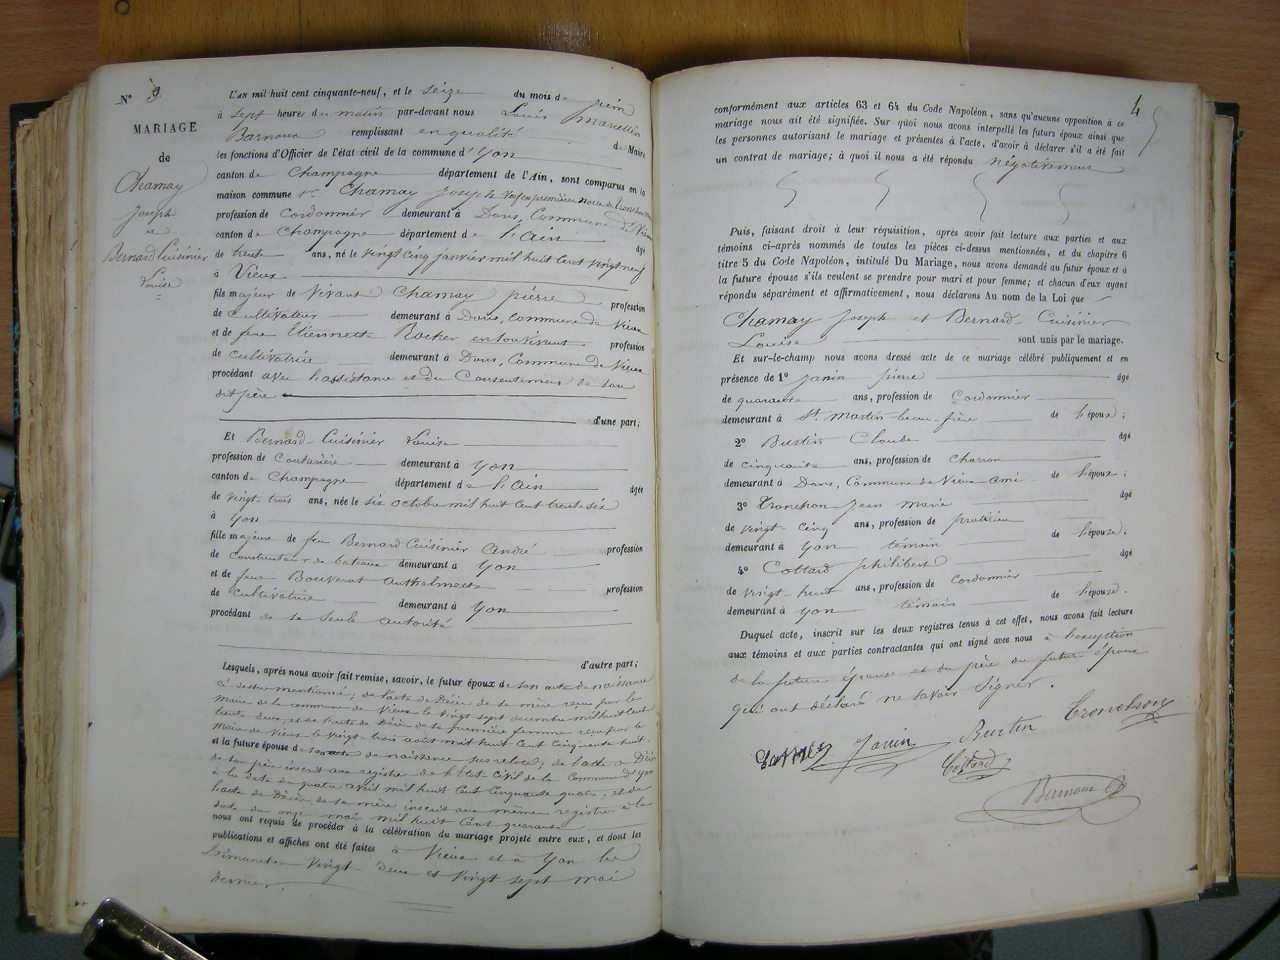 N° 9
MARIAGE
de
Chamay
Joseph
et
Bernard-Cuisinier
Louise
L'AN mil huit cent cinquante-neuf, et le seize du mois de juin
à sept heures du matin par-devant nous Louis Marcellin
Barnoux remplissant en qualité de Maire
les fonctions d'Officier de l'état civil de la commune d'Yon
canton de Champagne département de l'Ain, sont comparus en la
maison commune Chamay Joseph veuf en première noce de
profession de Cordonnier demeurant à Dons, Commune de Vieux
canton de Champagne département de l'Ain âgé
de trente ans, né le vingt cinq janvier mil huit cent vingt neuf
à Vieux
fils majeur de vivant Chamay pierre profession
de Cultivateur demeurant à Dons, Commune de Vieux
et de feue Etiennette Rocher en son vivant profession
de Cultivatrice demeurant à Dons, Commune de Vieux
procédant avec l'assistance et du Consentement de son
dit père
d'une part;
Et Bernard-Cuisinier Louise
profession de Couturière demeurant à Yon
canton de Champagne département de l'Ain âgée
de vingt-trois ans, née le six octobre mil huit cent trente six
à Yon
fille majeure de feu Bernard Cuisinier André profession
de Constructeur de bateaux demeurant à Yon
et de feue Bouverat Anthelmette profession
de Cultivatrice demeurant à Yon
procédant de sa seule autorité
d'autre part;
Lesquels, après nous avoir fait remise, savoir, le futur époux de son acte de naissance
ci dessus mentionné; de l'acte de Décès de sa mère reçu par le
Maire de la commune de Vieux le vingt sept décembre mil huit cent
trente deux, et de l'acte de Décès de sa première femme reçu par le
Maire de Vieux le vingt trois août mil huit Cent Cinquante huit.
et la future épouse de son acte de naissance sus relaté; de l'acte de Décès
de son père inscrit aux registres de l'Etat Civil de la Commune d'Yon
à la date du quatre avril mil huit Cent Cinquante quatre, et de
l'acte de Décès de sa mère inscrit aux même registre à la
date du onze mai mil huit Cent quarante
nous ont requis de procéder à la célébration du mariage projeté entre eux, et dont les
publications et affiches ont été faites à Vieux et à Yon les
Dimanches Vingt-deux et Vingt sept mai
dernier.
4
conformément aux articles 63 et 64 du Code Napoléon, sans qu'aucune opposition à ce
mariage nous ait été signifiée. Sur quoi nous avons interpellé les futurs époux ainsi que
les personnes autorisant le mariage et présentes à l'acte, d'avoir à déclarer s'il a été fait
un contrat de mariage; à quoi il nous a été répondu négativement
Puis, faisant droit à leur réquisition, après avoir fait lecture aux parties et aux
témoins ci-après nommés de toutes les pièces ci-dessus mentionnées, et du chapitre 6
titre 5 du Code Napoléon, intitulé Du Mariage, nous avons demandé au futur époux et à
la future épouse s'ils veulent se prendre pour mari et pour femme; et chacun d'eux ayant
répondu séparément et affirmativement, nous déclarons Au nom de la Loi que
Chamay Joseph et Bernard-Cuisinier
Louise sont unis par le mariage.
Et sur-le-champ nous avons dressé acte de ce mariage célébré publiquement et en
présence de 1° Janin pierre âgé
de quarante ans, profession de Cordonnier
demeurant à St Martin beau-frère de l'épouse;
2° Burtin Claude âgé
de cinquante ans, profession de Charron
demeurant à Dons, Commune de Vieux ami de l'épouse;
3° Tronchon Jean Marie âgé
de vingt cinq ans, profession de
demeurant à Yon témoin de l'épouse;
4° Cottard Philibert âgé
de vingt-huit ans, profession de Cordonnier
demeurant à Yon témoin de l'épouse.
Duquel acte, inscrit sur les deux registres tenus à cet effet, nous avons fait lecture
aux témoins et aux parties contractantes qui ont signé avec nous à l'exception
de la future épouse et du père du futur époux
qui ont déclaré ne savoir signer.
Janin Burtin Tronchon
Cottard
Barnoux